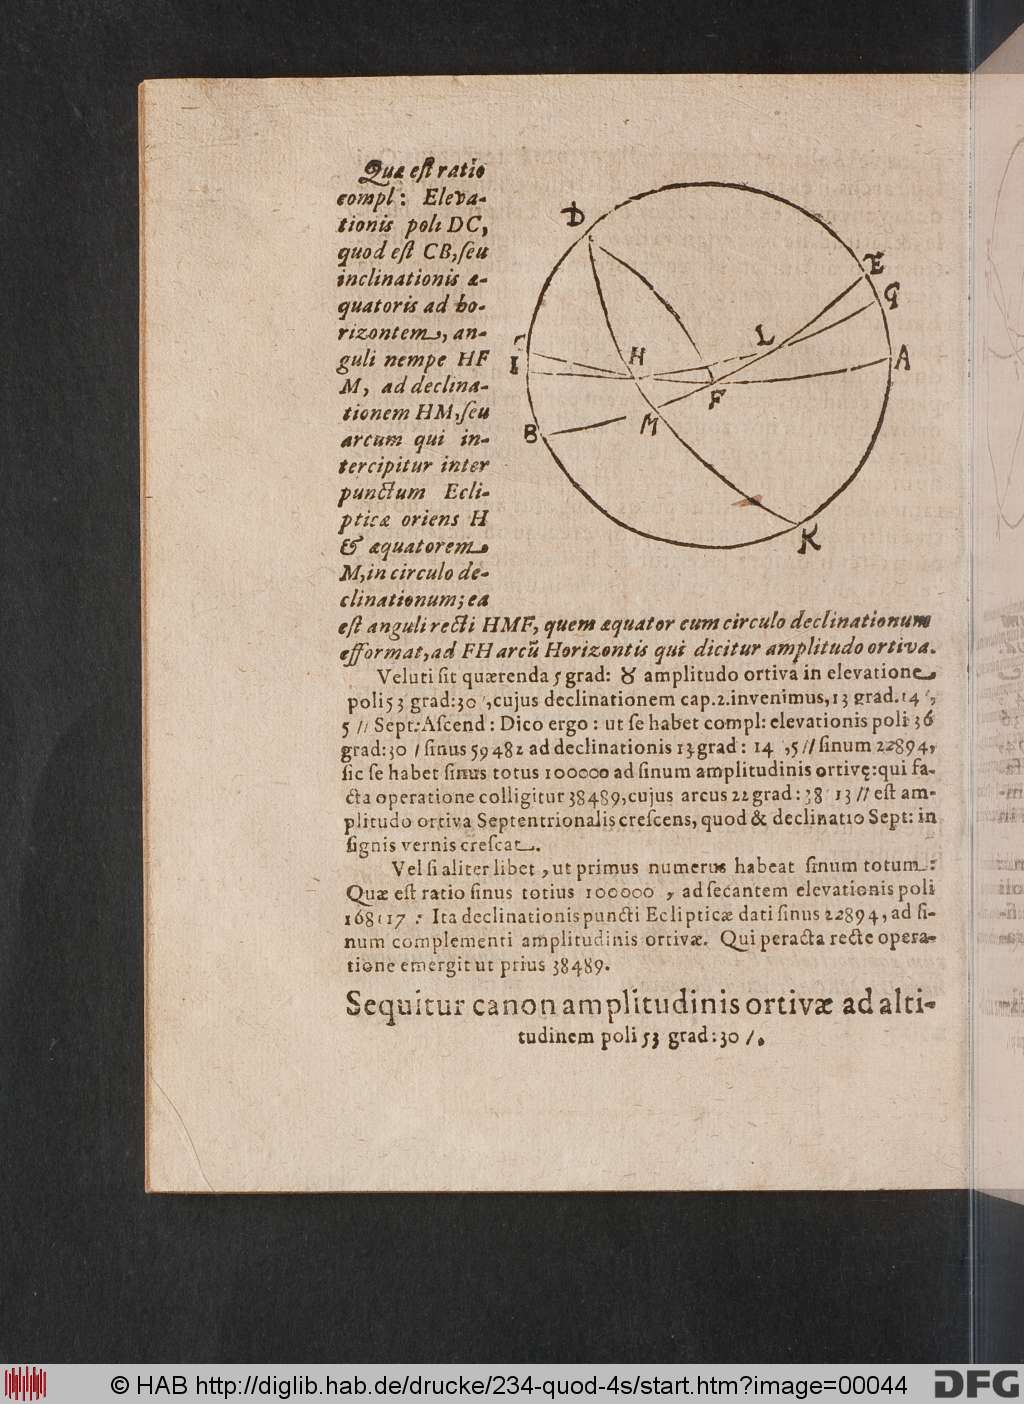 Quæ eſt ratio
compl: Eleva-
tionis poli DC,
quod eſt CB, ſeu
inclinationis æ-
quatoris ad ho-
rizontem, an-
guli nempe HF
M, ad declina-
tionem HM, ſeu
arcum qui in-
tercipitur inter
punctum Ecli-
pticæ oriens H
& æquatorem
M, in circulo de-
clinationum; ea
eſt anguli recti HMF, quem æquator cum circulo declinationum
efformat, ad FH arcũ Horizontis qui dicitur amplitudo ortiva.
D
E
G
A
L
H
I
F
M
B
K
Veluti ſit quærenda 5 grad: ♉ amplitudo ortiva in elevatione
poli 53 grad: 30 ′, cujus declinationem cap. 2. invenimus, 13 grad. 14 ′,
5 // Sept: Aſcend: Dico ergo: ut ſe habet compl: elevationis poli 36
grad: 30 / ſinus 59482 ad declinationis 13 grad: 14 , 5 // ſinum 22894,
ſic ſe habet ſinus totus 100000 ad ſinum amplitudinis ortivę: qui fa-
cta operatione colligitur 38489, cujus arcus 22 grad: 38 ′ 13 // eſt am-
plitudo ortiva Septentrionalis creſcens, quod & declinatio Sept: in
ſignis vernis creſcat.
Vel ſi aliter libet, ut primus numerus habeat ſinum totum:
Quæ eſt ratio ſinus totius 100000, ad ſecantem elevationis poli
168117 : Ita declinationis puncti Eclipticæ dati ſinus 22894, ad ſi-
num complementi amplitudinis ortivæ. Qui peracta recte opera-
tione emergit ut prius 38489.
Sequitur canon amplitudinis ortivæ ad alti-
tudinem poli 53 grad: 30 /.
© HAB http://diglib.hab.de/drucke/234-quod-4s/start.htm?image=00044
DFG